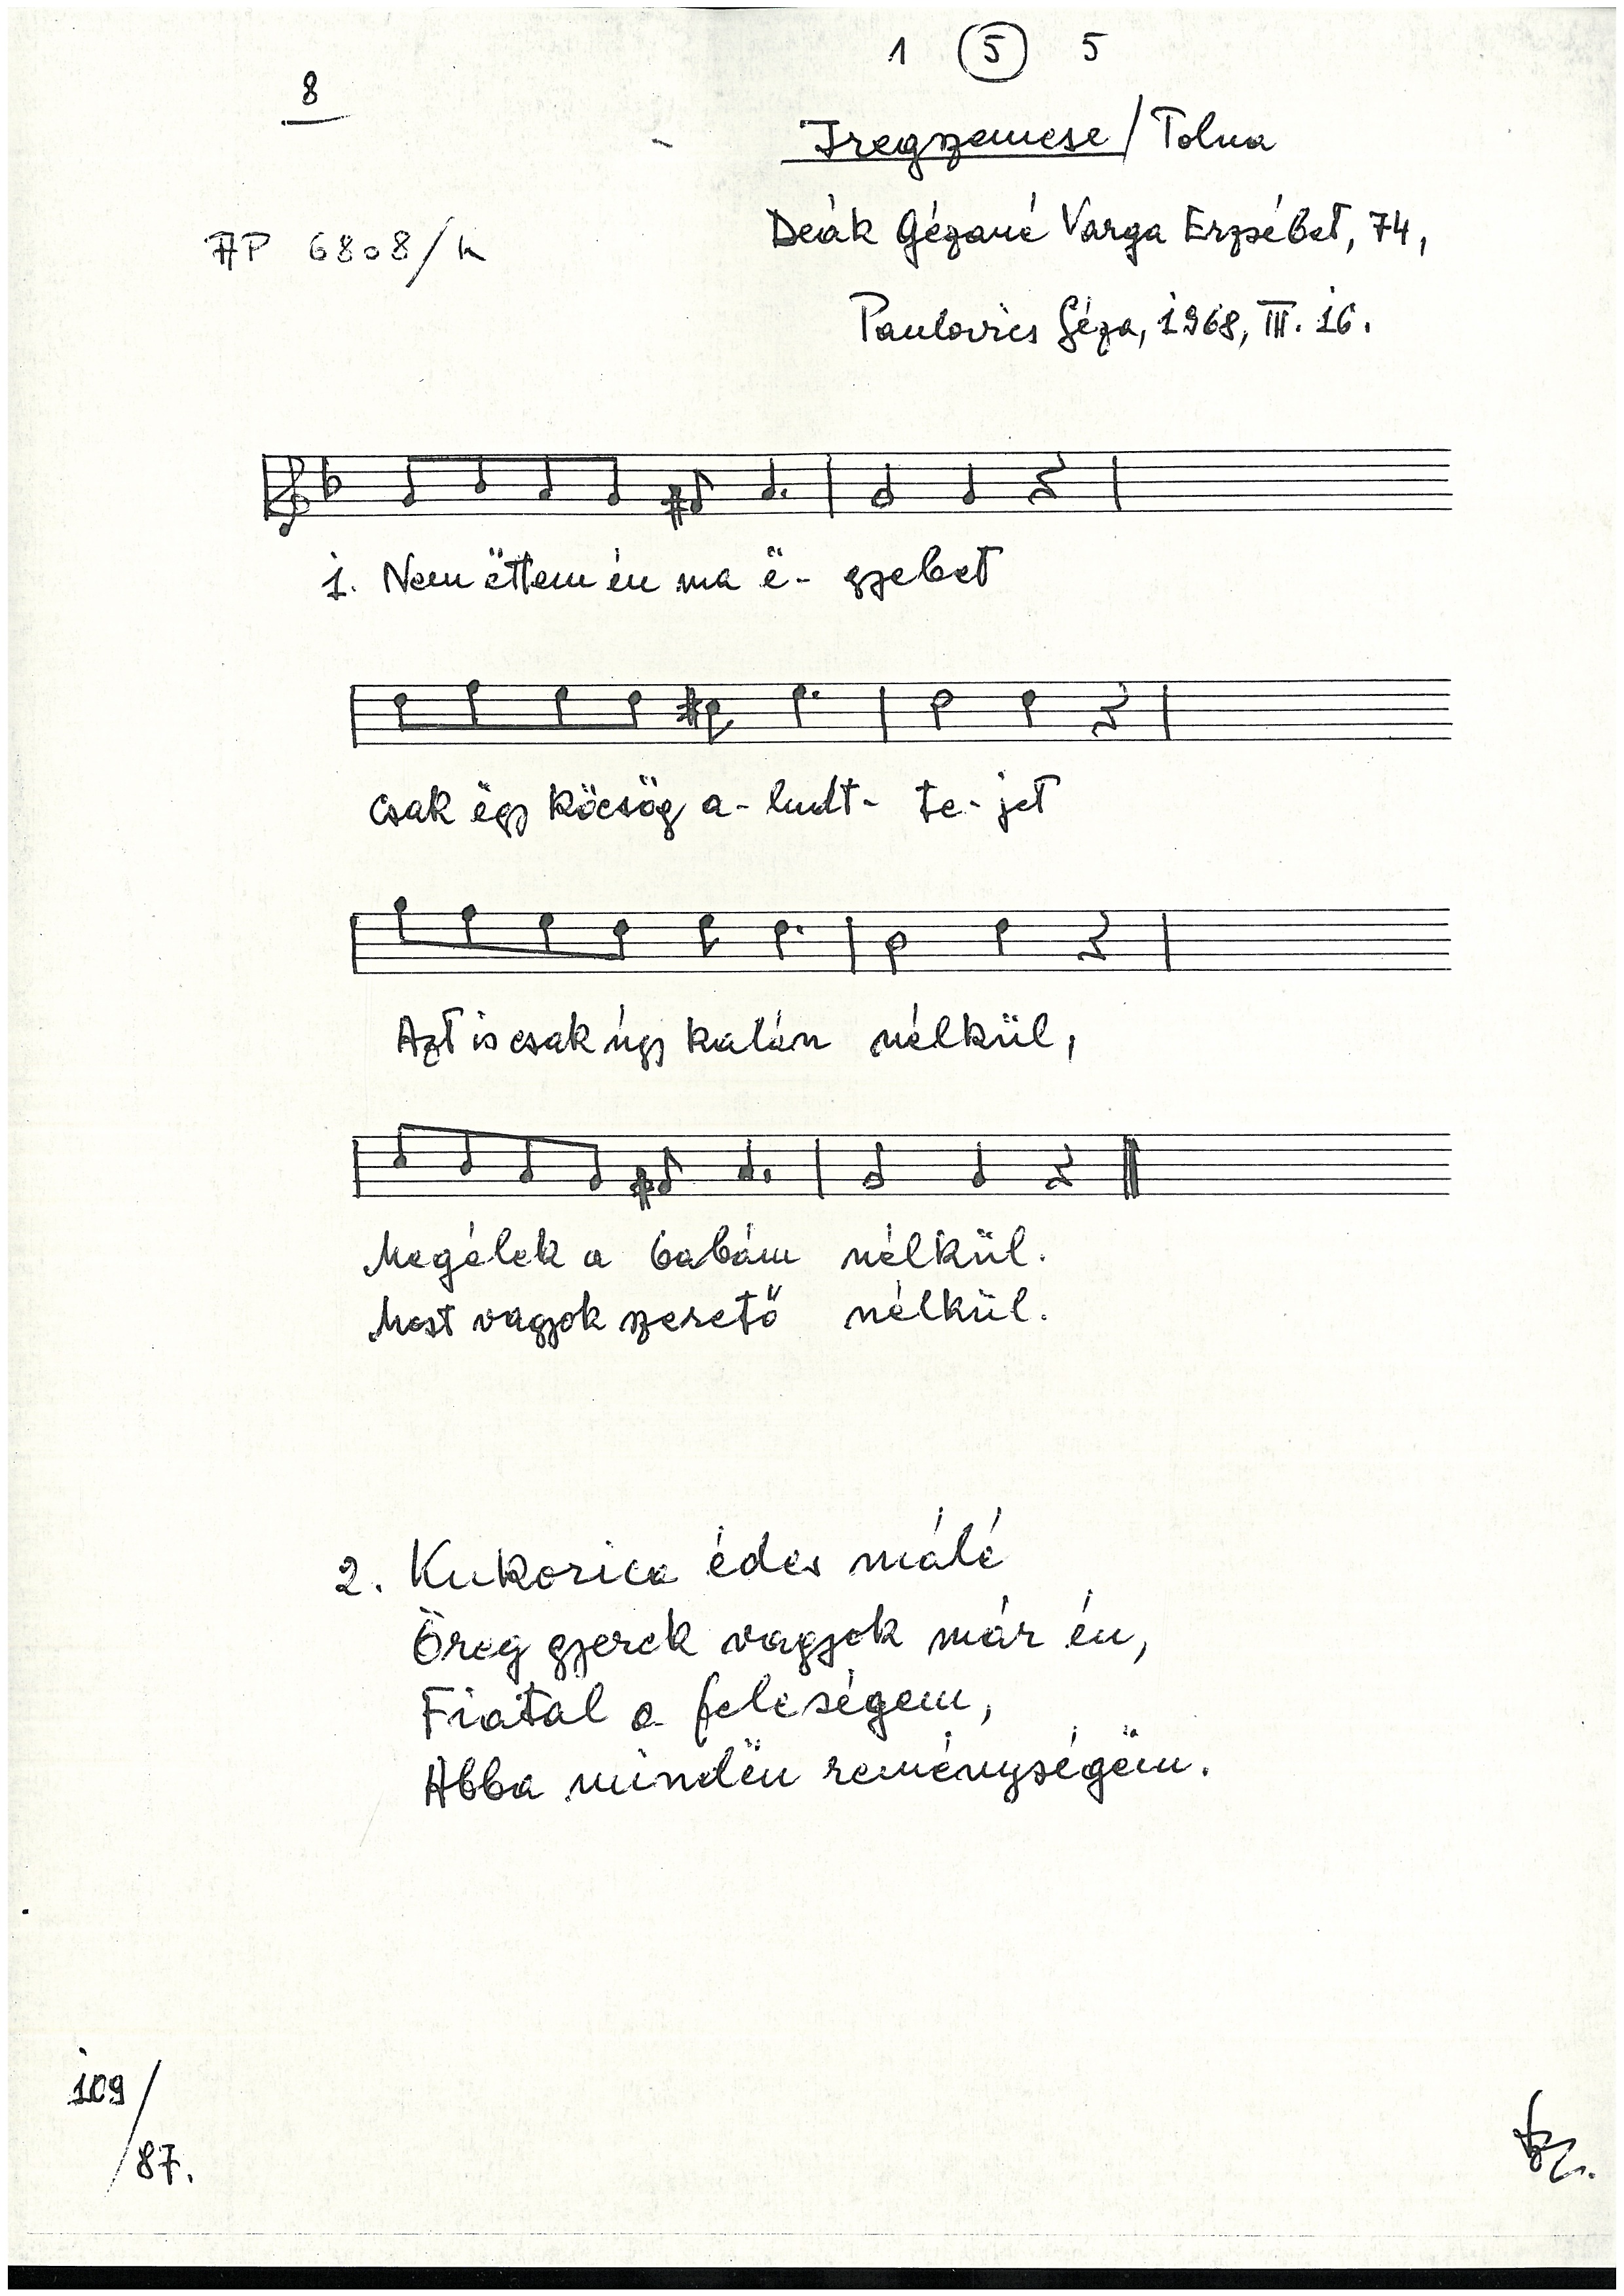 1 5 5
8
Iregszemcse / Tolna
AP 6808/k
Deák Gézáné Varga Erzsébet, 74,
Paulovics Géza, 1968, III. 16.
1. Nem ëttem én ma ë- gyebet
csak ëgy köcsög a- ludt- te- jet
Azt is csak úgy kalán nélkül,
Megélek a babám nélkül.
Most vagyok szerető nélkül.
2. Kukorica édes málé
Öreg gyerek vagyok már én,
Fiatal a feleségem,
Abba mindën reménységëm.
109/87.